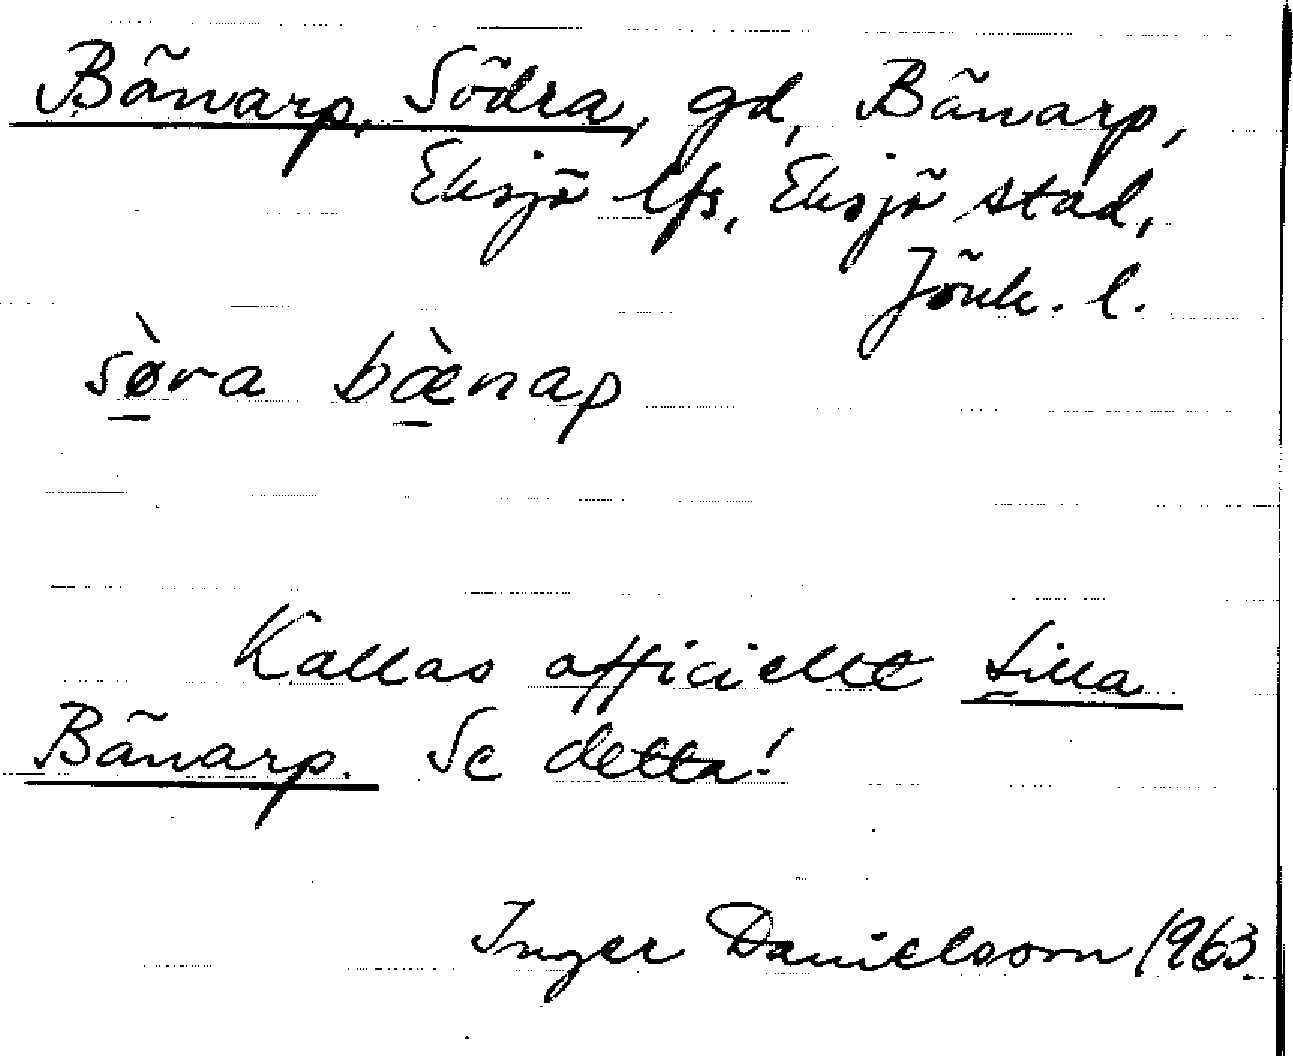 Bänarp, Södra, gd, Bänarp,
Eksjö lfs, Eksjö stad,
Jönk. l.
sø̀ra bæ̀nap
Kallas officiellt Lilla
Bänarp. Se detta!
Inger Danielsson 1963